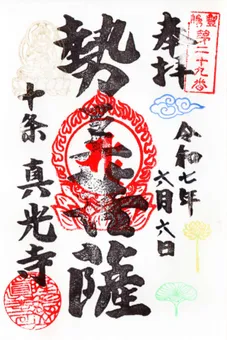 豊島
第二十九番
奉拝
令和七年
六月六日
勢至菩薩
十条 真光寺